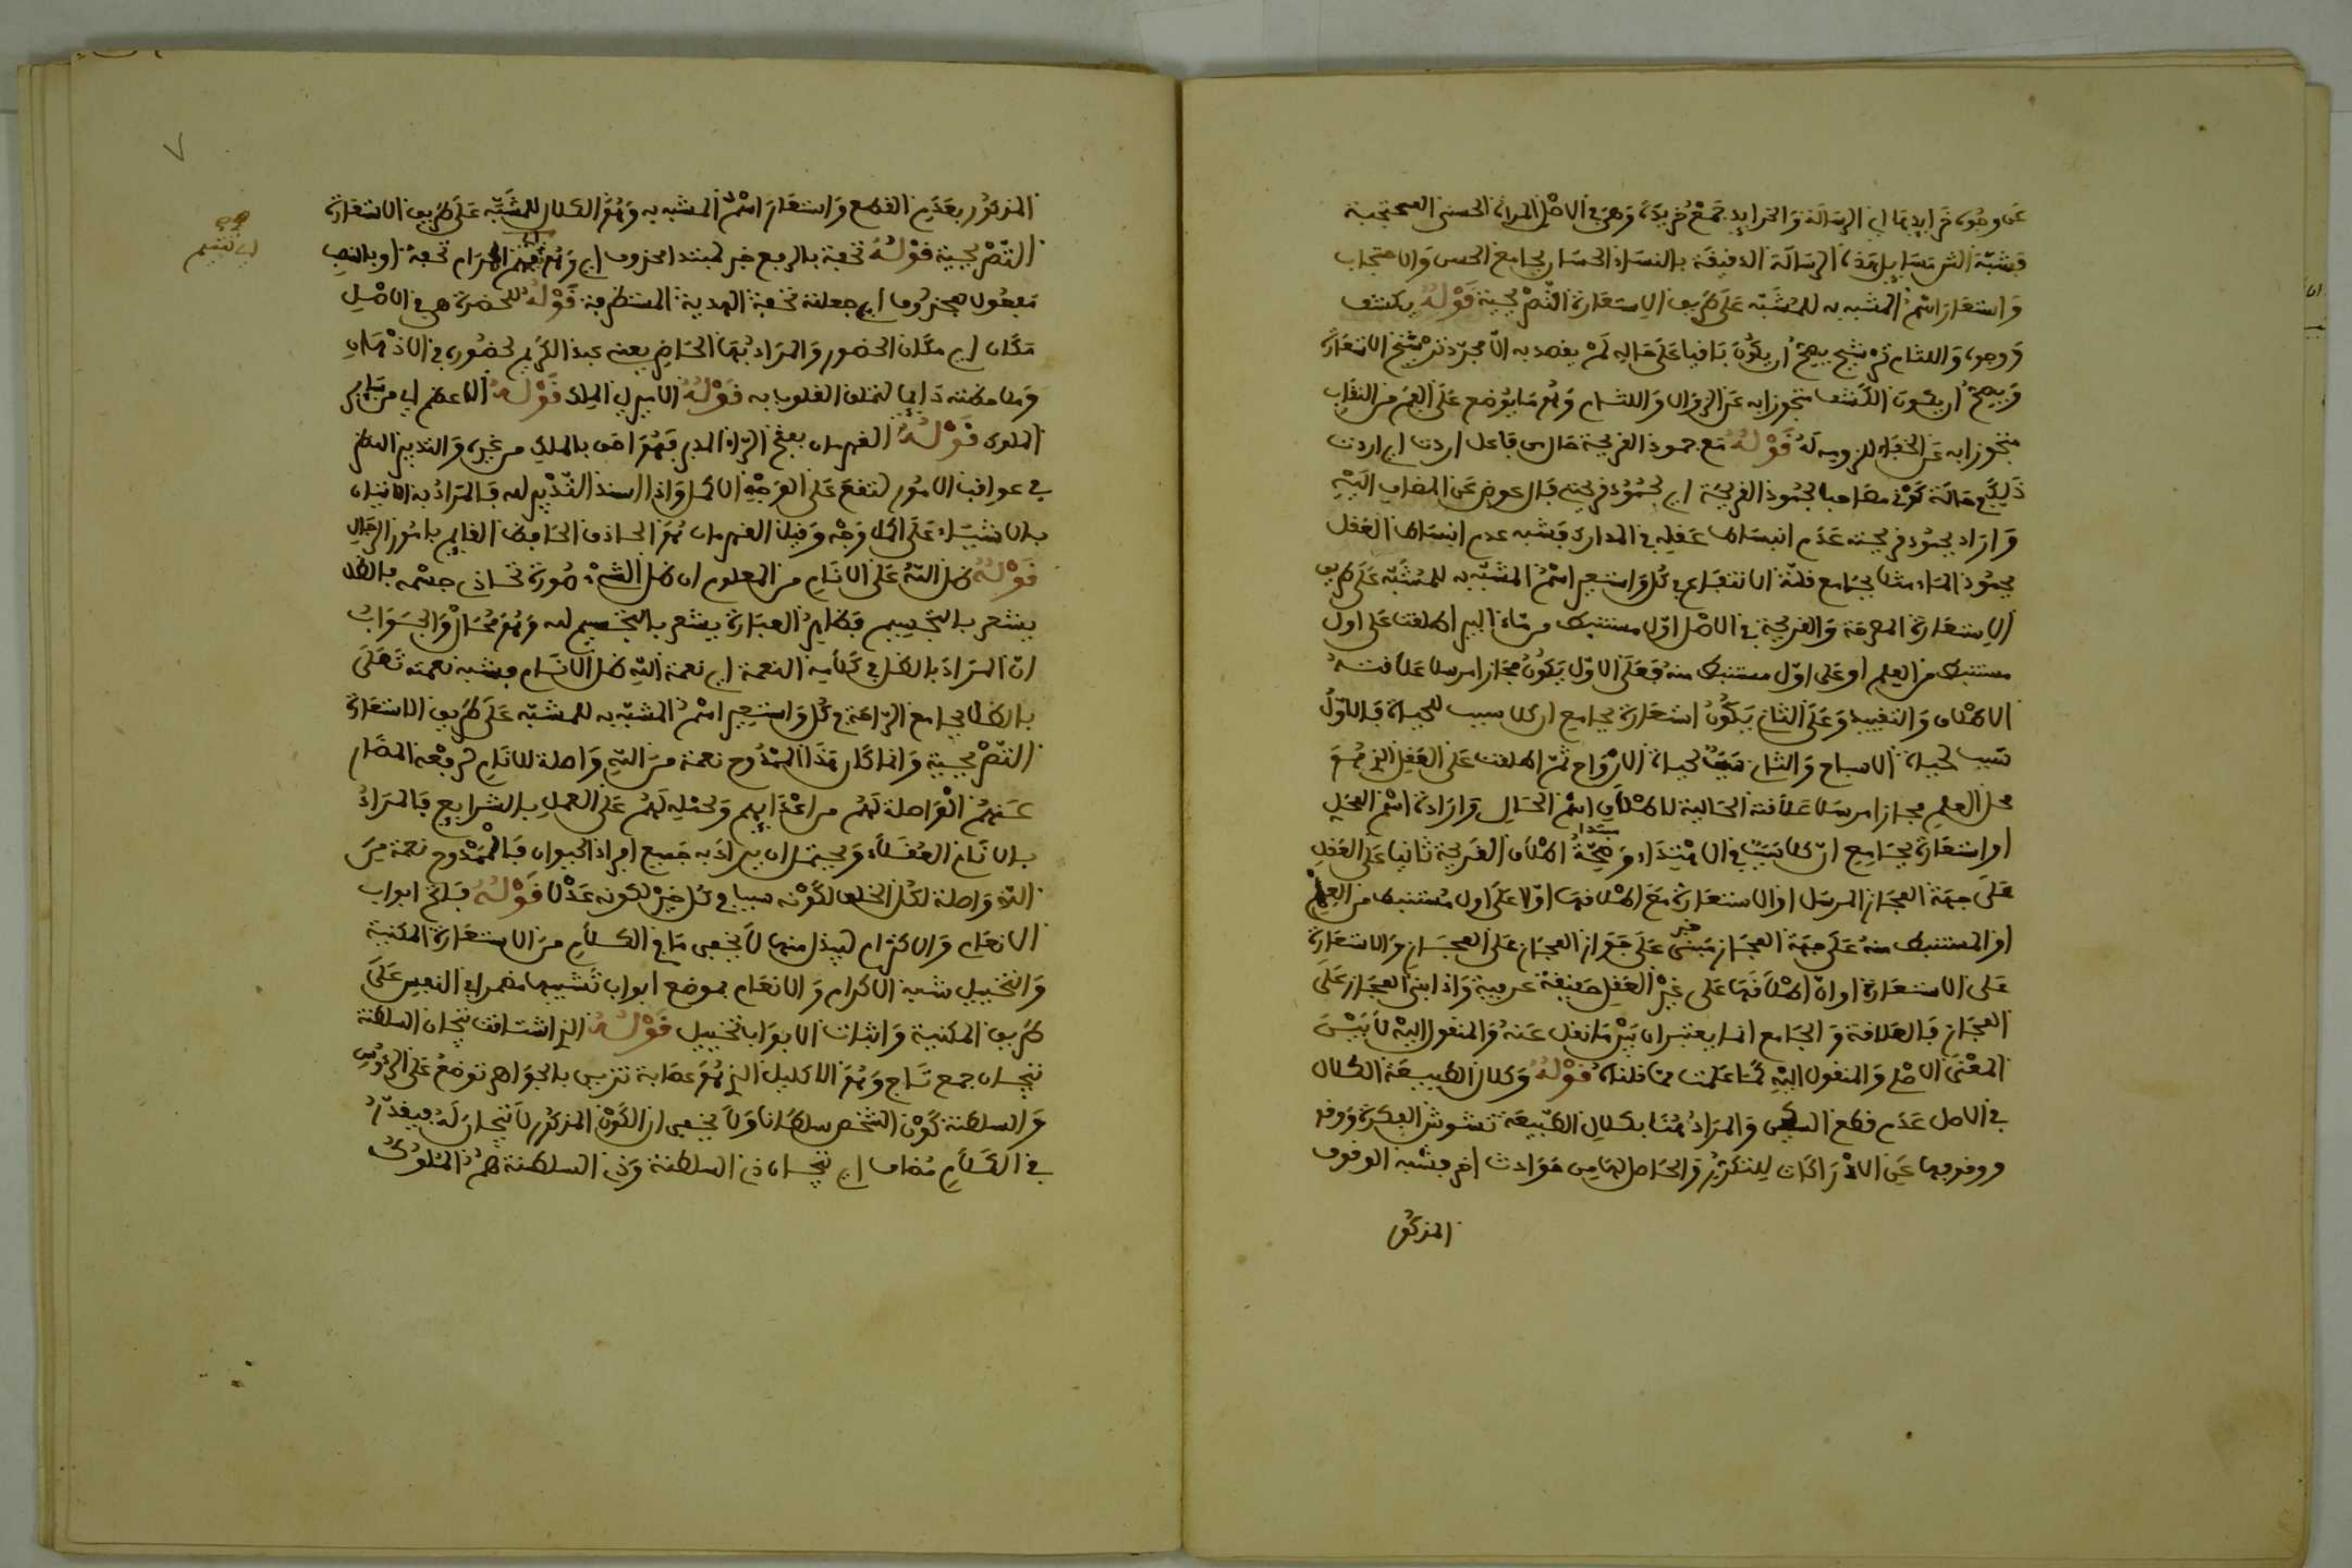 عن وجوه خرايدها اي الرسالة والخرايد جمع خريدة وهي في الاصل المراة الحسنى المحتجبة
فشبه المسايل هذه الرسالة الدقيقة بالنساء الحسان بجامع الحسن والاحتجاب
واستعار اسم المشبه به للمشبه على طريق الاستعارة التصريحية قوله يكشف
ووجوه واللثام ترشيح يصح ان يكون باقيا على حاله لم يقصد به الا مجرد ترشيح الاستعارة
ويصح ان يكون الكشف متجوزا به عن الزوال واللثام وهو ما يوضع على الفم من النقاب
متجوزا به عن الخفاء للزومه له قوله مع جمود القريحة حال من فاعل اردت اي اردت
ذلك حالة كوني مصاحبا لجمود القريحة اي لجمود قريحتي فال عوض عن المضاف اليه
واراد بجمود قريحته عدم انبساط عقله في المدارك فشبه عدم انبساط العقل
بجمود الماء مثلا بجامع قلة الانتفاع في كل واستعير اسم المشبه به للمشبه على طريق
الاستعارة المصرحة والقريحة في الاصل اول مستنبط من ماء البير اطلقت على اول
مستنبط من العلم او على اول مستنبط منه فعلى الاول يكون مجازا مرسلا علاقته
الاطلاق والتقييد وعلى الثاني يكون استعارة بجامع ان كلا سبب للحياة فالاول
سبب لحياة الاشباح والثاني سبب لحياة الارواح ثم اطلقت على العقل الذي هو
محل العلم مجازا مرسلا علاقته الحالية لاطلاق اسم الحال وارادة اسم المحل
او استعارة بجامع ان كلا سببا في الاهتداء وصحة اطلاق القريحة ثانيا على العقل
مبتدا
على جهة المجاز المرسل او الاستعارة مع اطلاقها اولا على اول مستنبط من العلم
او المستنبط منه على جهة المجاز مبني على جواز المجاز على المجاز والاستعارة
خبر
على الاستعارة او ان اطلاقها على غير العقل حقيقة عرفية واذا ابني المجاز على
المجاز فالعلاقة والجامع انما يعتبران بين ما نقل عنه والمنقول اليه لا بين
المعنى الاصلي والمنقول اليه كما علمت مما قلناه قوله وكلال الطبيعة الكلال
في الاصل عدم قطع السكين والمراد هنا بكلال الطبيعة تشوش الفكرة ووقو
ووقوفها عن الادراكات للتكدير الحاصل لها من حوادث اخر فشبه الوقوف
المذكور
المذكور بعدم القطع واستعار اسم المشبه به وهو الكلال للمشبه على طريق الاستعارة
التصريحية قوله تحفة بالرفع خبر لمبتدا محذوف اي وهو تحفة او بالنصب
مفعول لمحذوف اي جعلته تحفة الهدية المستظرفة قوله للحضرة هي في الاصل
مكان اي مكان الحضور والمراد بها الحاضر يعني عبد الكريم لحضوره في الاذهان
وملاحظته دايما لتعلق القلوب به قوله الامير اي الملك قوله الاعظم اي من ساير
الملوك قوله القهرمان بفتح الراء المدبر فهو اخص بالملك من غيره والتدبير النظر
في عواقب الامور لتقع على الوجه الاكمل واذا اسند التدبير لله فالمراد به الاتيان
بالاشياء على اكمل وجه وقيل القهرمان هو الحاذق الحافظ القايم بامور الرجال
قوله ظل الله على الانام من المعلوم ان ظل الشيء صورة تحاذي جسمه فالظل
يشعر بالتجسيم فظاهر العبارة يشعر بالتجسيم لله وهو محال والجواب
ان المراد بالظل في كلامه النعمة اي نعمة الله ظل الانام فشبه نعمته تعلى
بالظل بجامع الراحة في كل واستعير اسم المشبه به للمشبه على طريق الاستعارة
التصريحية وانما كان هذا الممدوح نعمة من الله واصلة للانام لدفعه المضار
عنهم الواصلة لهم من اعدايهم وحمله لهم على العمل بالشرايع فالمراد
بالانام العقلاء ويحتمل ان يراد به جميع افراد الحيوان فالممدوح نعمة من
الله واصلة لكل الخلق لكونه سببا في كل خير لكونه عدلا قوله فاتح ابواب
الانعام والاكرام لهذا منها لا يخفى ما في الكلام من الاستعارة المكنية
والتخييل شبه الاكرام والانعام بموضع ابواب تشبيها مضمرا في النفس على
طريق المكنية واثبات الابواب تخييل قوله الذي اشتاقت تيجان السلطنة
تيجان جمع تاج وهو الاكليل الذي هو عصابة تزين بالجواهر توضع على الرؤس
والسلطنة كون الشخص سلطانا ولا يخفى ان الكون المذكور لا تيجان له فيقدر
في الكلام مضاف اي تيجان ذي السلطنة وذي السلطنة هم الملوك